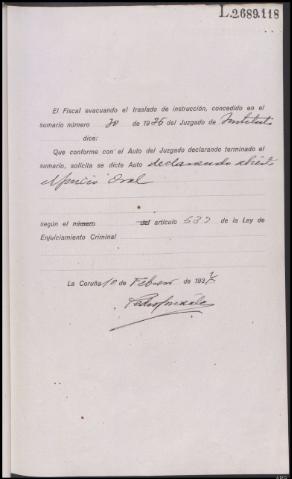 L.2689.118
El Fiscal evacuando el traslado de instrucción, concedido en el
sumario número 70 de 1936 del Juzgado de
dice:
Que conforme con el Auto del Juzgado declarando terminado el
sumario, solicita se dicte Auto declarando abierto
el Juicio Oral
según el número del artículo 633 de la Ley de
Enjuiciamiento Criminal
La Coruña 10 de Febrero de 1937